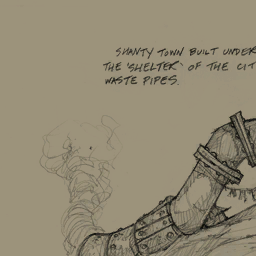 SHANTY TOWN BUILT UNDER
THE 'SHELTER' OF THE CIT
WASTE PIPES.